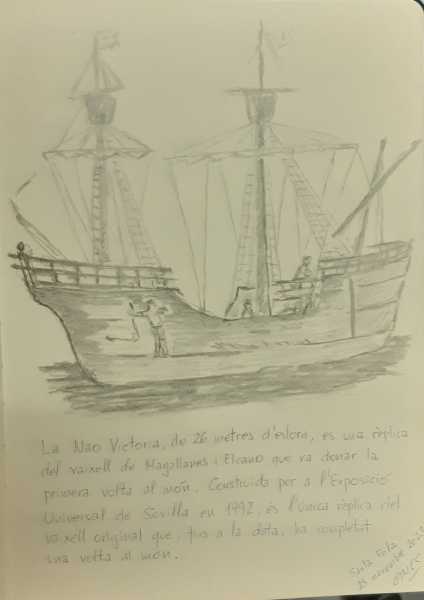 La Nao Victoria, de 26 metres d'eslora, es una rèplica
del vaixell de Magallanes i Elcano que va donar la
primera volta al món. Construida per a l'Exposició
Universal de Sevilla en 1992, és l'única rèplica del
vaxell original que, fins a la data, ha completat
una volta al món.
Santa Pola
novembre